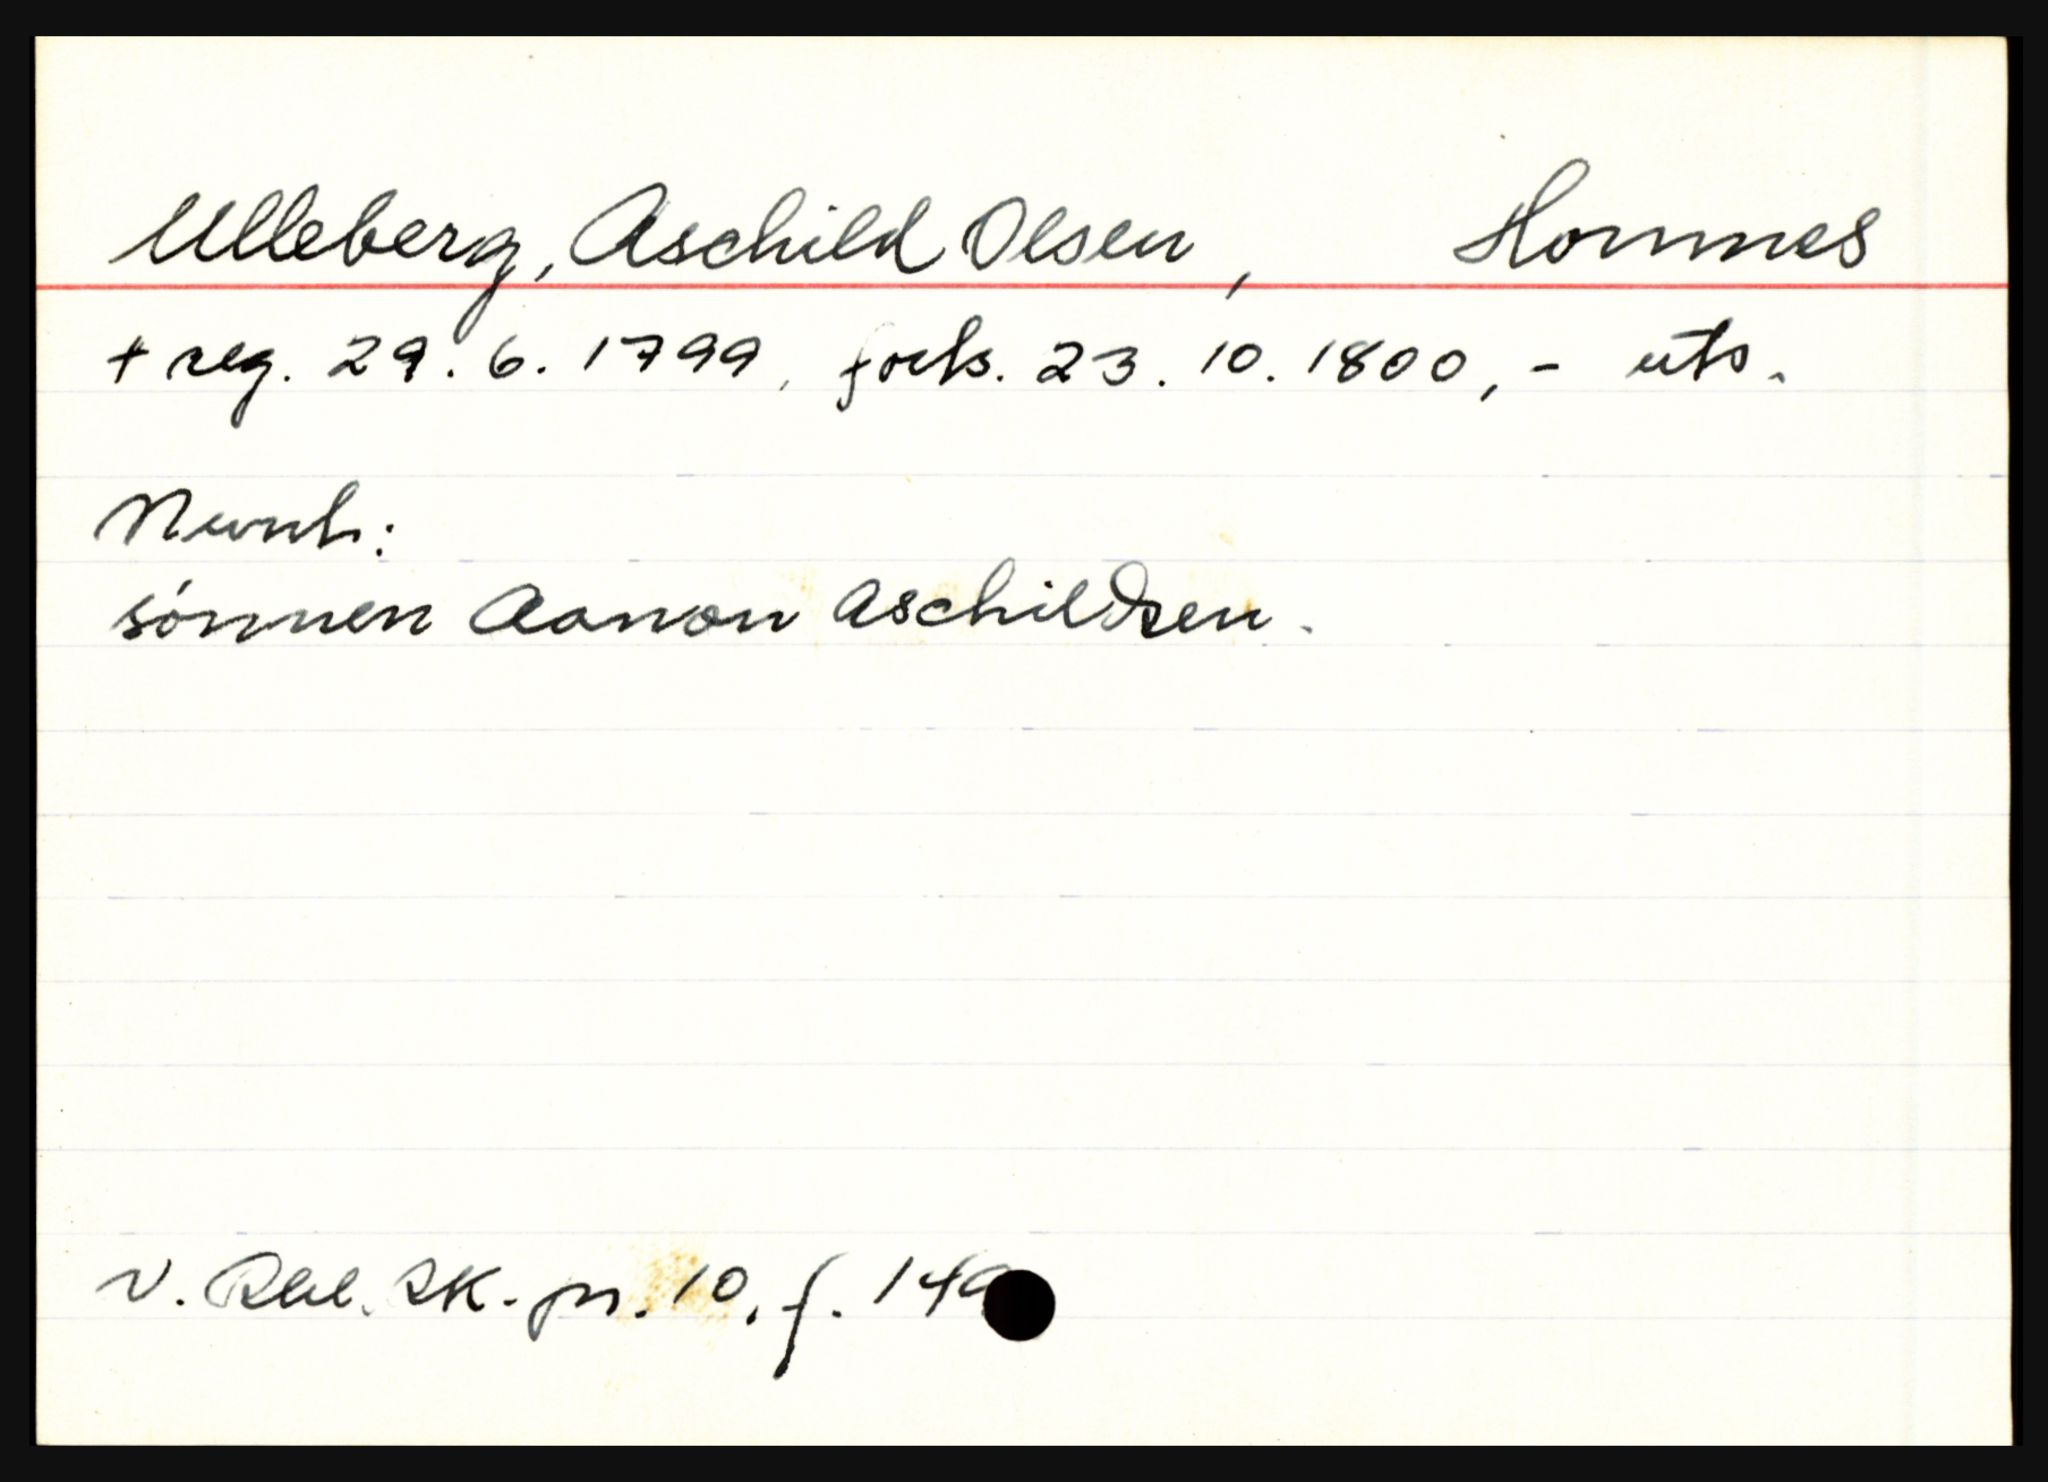 Ulleberg, Aschild Olsen, Hornnes
+ reg. 29.6.1799, forts. 23.10.1800, - uts.
Nevnt:
sønnen Aanon Aschildsen.
V. Rbl. SK. pr. 10, f. 149